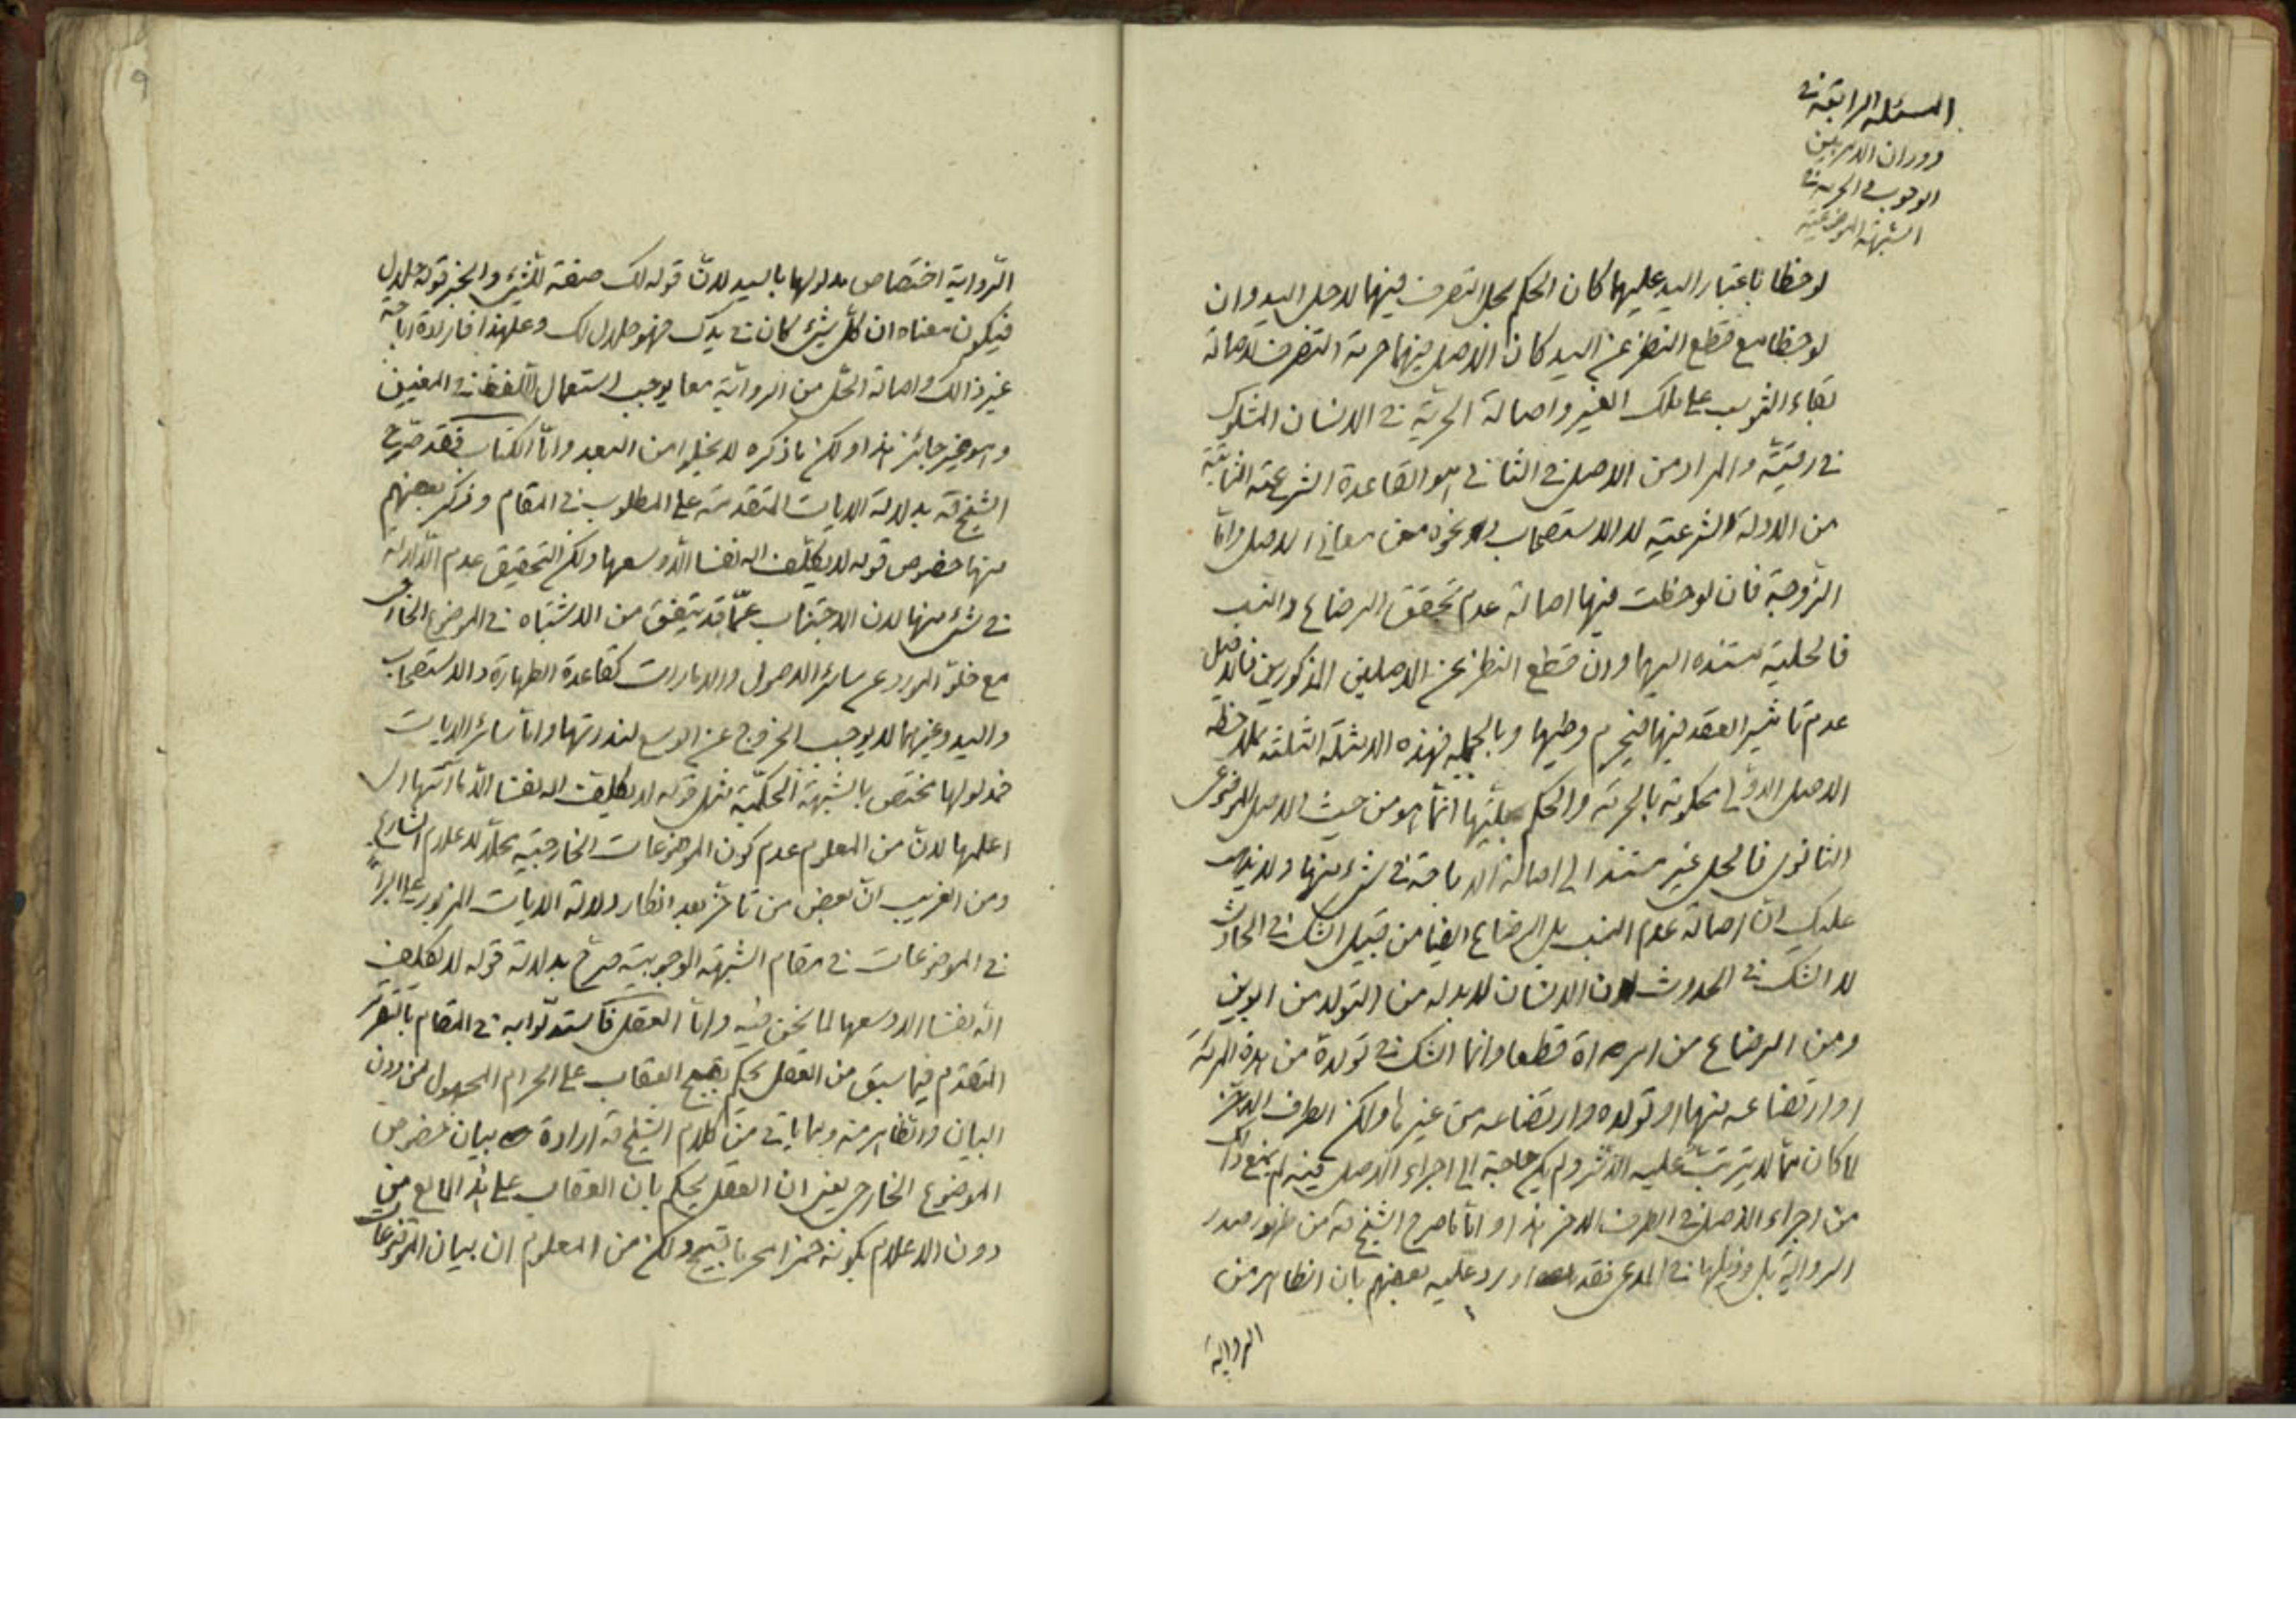 المسئلة الرابعة في
دوران الامر بين
الوجوب والحرمة في
الشبهة الموضوعية
لوحظا باعتبار اليد عليهما كان الحكم بحل التصرف فيهما لاجل اليد وان
لوحظا مع قطع النظر عن اليد كان الاصل فيهما حرمة التصرف لاصالة
بقاء الثوب على ملك الغير واصالة الحرية في الانسان المشكوك
في رقيته والمراد من الاصل في الثاني هو القاعدة الشرعية الثابتة
من الادلة الشرعية لا الاستصحاب ونحوه من معاني الاصل واما
الزوجة فان لوحظت فيها اصالة عدم تحقق الرضاع والنسب
فالحلية مستنده اليهما وان قطع النظر عن الاصلين المذكورين فالاصل
عدم تاثير العقد فيها فيحرم وطيها وبالجملة فهذه الامثلة الثلثة بملاحظة
الاصل الاولي محكومة بالحرمة والحكم بحليتها انما هو من حيث الاصل الموضوعى
الثانوى فالحل غير مستند الى اصالة الاباحة في شئ منها ولا يذهب
عليك ان اصالة عدم النسب بل الرضاع ايضا من قبيل الشك في الحادث
لا الشك في الحدوث لان الانسان لا بد له من التولد من ابوين
ومن الرضاع من امراة قطعا وانما الشك في تولده من هذه المرئة
او ارتضاعه منها او تولده وارتضاعه من غيرها ولكن الطرف الاخر
لما كان مما لا يترتب عليه الاثر ولم يكن حاجة الى اجراء الاصل فيه لم يمنع ذلك
من اجراء الاصل في الطرف الاخر هذا واما ما صرح الشيخ ره من ظهور صدر
الرواية بل وذيلها في المدعى فقد اورد عليه بعضهم بان الظاهر من
الرواية
٩
الرواية اختصاص مدلولها باليد لان قوله لك صفة للشئ والخبر قوله حلال
فيكون معناه ان كل شئ كان في يدك فهو حلال لك وعلى هذا فارادة اباحة
غير ذالك واصالة الحل من الرواية معا يوجب استعمال اللفظ في المعنيين
وهو غير جائز هذا ولكن ما ذكره لا يخلوا من البعد واما الكتاب فقد صرح
الشيخ ره بدلالة الايات المتقدمة على المطلوب في المقام وذكر بعضهم
منها خصوص قوله لا يكلف الله نفسا الا وسعها ولكن التحقيق عدم الدلالة
في شئ منها لان الاجتناب عما قد يتفق من الاشتباه في الموضوع الخارجى
مع خلو المورد عن سائر الاصول والامارات كقاعدة الطهارة والاستصحاب
واليد وغيرهما لا يوجب الخروج عن الوسع لندرتها واما سائر الايات
فمدلولها مختص بالشبهة الحكمية مثل قوله لا يكلف الله نفسا الا ما آتيها اى
اعلمها لان من المعلوم عدم كون الموضوعات الخارجية محلا لاعلام الشارع
ومن الغريب ان بعض من تاخر بعد انكار دلالة الايات المزبور على البرائة
في الموضوعات في مقام الشبهة الوجوبية صرح بدلالة قوله لا يكلف
الله نفسا الا وسعها لما نحن فيه واما العقل فاستدلوا به في المقام بالتقرير
المتقدم فيما سبق من العقل يحكم بقبح العقاب على الحرام المجهول من دون
البيان والظاهر منه وبما ياتى من كلام الشيخ ره ارادة بيان خصوص
الموضوع الخارجى يعنى ان العقل يحكم بان العقاب على هذا المايع من
دون الاعلام بكونه خمرا محرما قبيح ولكن من المعلوم ان بيان الموضوعات